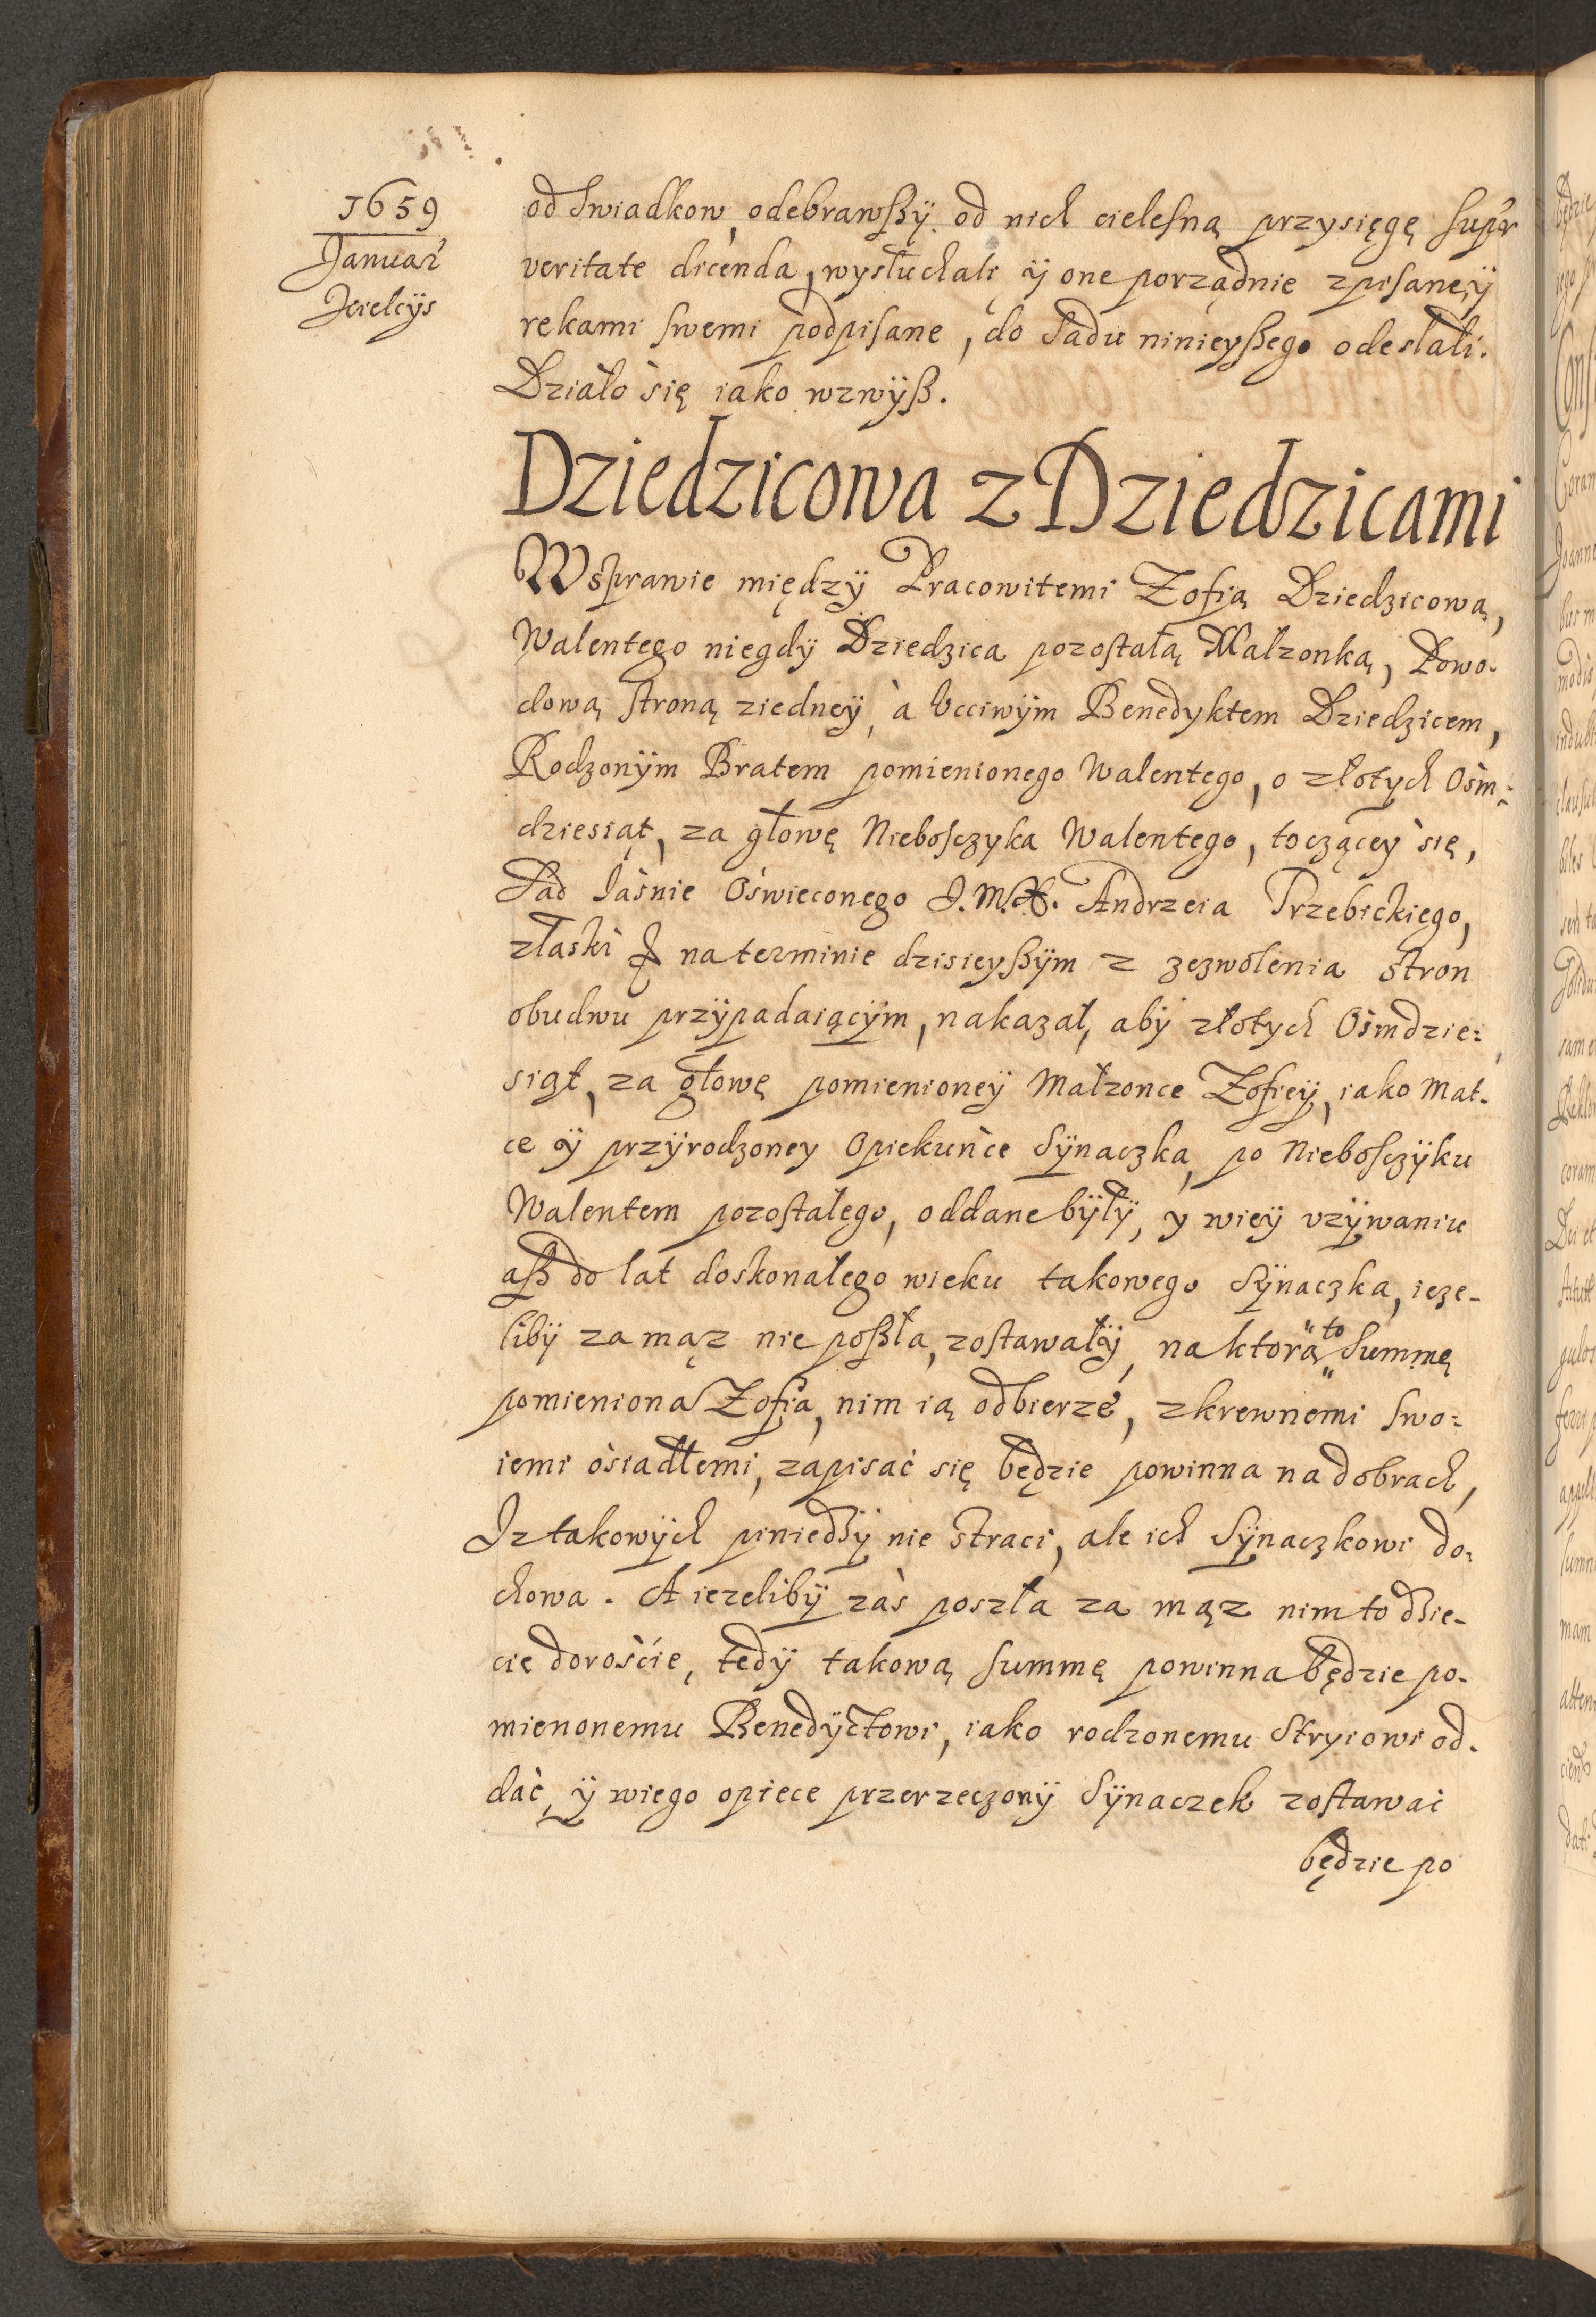 1659
Januar
Kielcÿs
od Swiadkow, odebrawßÿ od nich cielesną przysięgę supr
veritate dicenda, wysłuchali ÿ one porządnie zpisane, ÿ
rekami swemi podpisane, do Sadu ninieyßego odesłali.
Działo się iako wzwÿß.
Dziedzicowa z Dziedzicami
W sprawie międzÿ Pracowitemi Zofią Dziedzicową,
Walentego niegdÿ Dziedzica pozostałą Małzonką, Powo-
dową stroną ziedneÿ, à Vcciwÿm Benedyktem Dziedzicem,
Rodzonÿm Bratem pomienionego Walentego, o złotych Ośm-
dziesiąt, za głowę Nieboszczyka Walentego, toczącey się,
Sad Jaśnie Oświeconego J.M.X. Andrzeia Trzebickiego,
złaski na terminie dzisieyßÿm z zezwolenia stron
obudwu przÿpadaiącÿm, nakazał, abÿ złotych Ośmdzie-
siąt, za głowę pomienioneÿ Małzonce Zofieÿ, iako Mat-
ce ÿ przÿrodzoney Opiekuńce Sÿnaczka, po Nieboszczÿku
Walentem pozostałego, oddane bÿłÿ, y wieÿ vzÿwaniu
aß do lat doskonałego wieku takowego Sÿnaczka, ieze-
libÿ za mąz nie poßła, zostawałÿ, na ktorą to Summę
pomieniona Zofia, nim ią odbierze, zkrewnemi swo-
iemi ośiadłemi, zapisać się będzie powinna na dobrach,
Iz takowÿch piniedzÿ nie straci, ale ich Sÿnaczkowi do-
chowa. A iezelibÿ zaś poszła za mąz nim to dzie-
cie dorośćie, tedÿ takową summę powinna będzie po-
mienonemu Benedÿctowi, iako rodzonemu Stryiowi od-
dać, ÿ wiego opiece przerzeczonÿ Sÿnaczek zostawać
będzie po